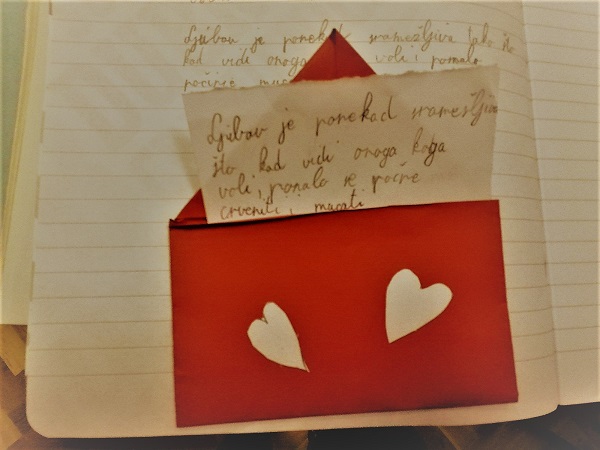 Ljubav je ponekad sramežljiva tako što
kad vidi onoga voli i pomalo
počinje
Ljubav je ponekad sramežljiva
što kad vidi onoga koga
voli, pomalo se počne
crveniti i mucati